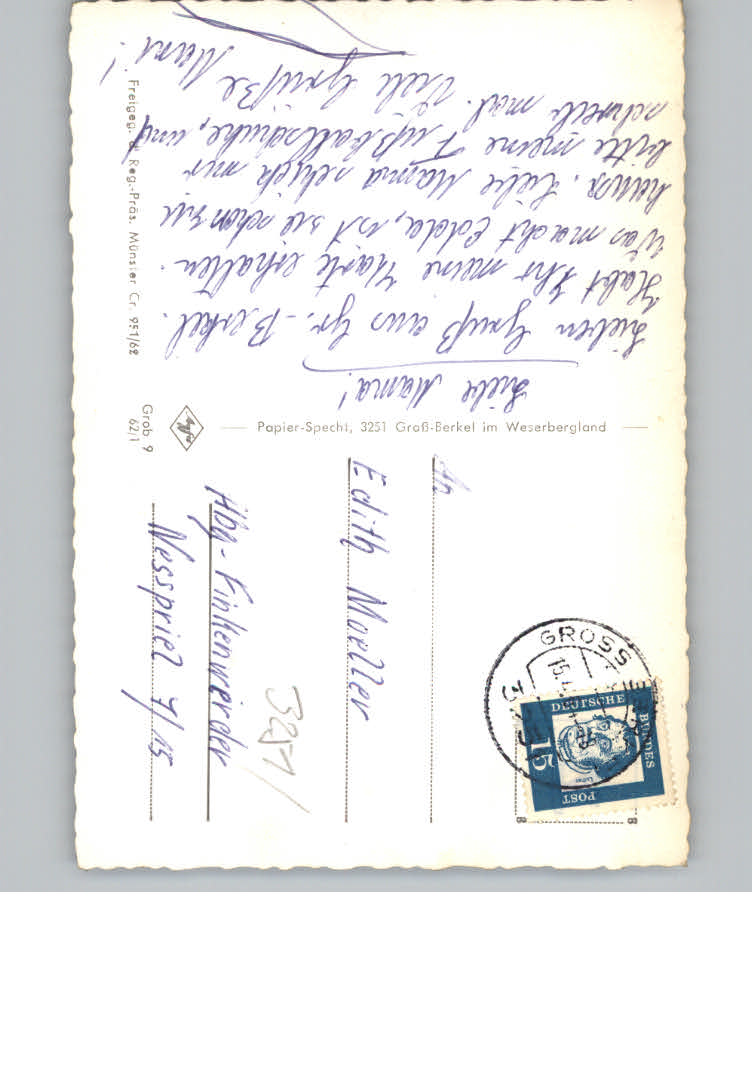 Liebe Mama!
Lieben Gruß aus Gr.-Berkel.
Habt Ihr meine Karte erhalten.
Was macht Edda, ist sie schon zu
hause. Liebe Mama schick mir
bitte meine Fußballschuhe, und
schreib mal. Viele Grüße
Freigeg. Reg.-Präs. Münster Cr. 951/62
Grob 9
62/1
Papier-Specht, 3251 Groß-Berkel im Weserbergland
An
Edith Moeller
Hbg-Finkenwerder
Nesspriel 7/15
3251
GROSS
DEUTSCHE
BUNDES
POST
15
Luther